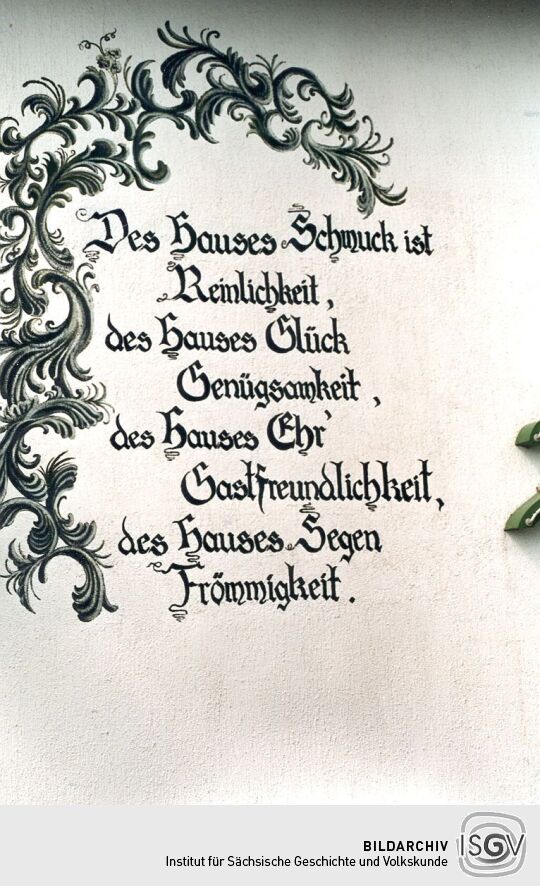 Des Hauses Schmuck ist
Reinlichkeit,
des Hauses Glück
Genügsamkeit,
des Hauses Ehr'
Gastfreundlichkeit,
des Hauses Segen
Frömmigkeit.
BILDARCHIV
Institut für Sächsische Geschichte und Volkskunde
ISGV